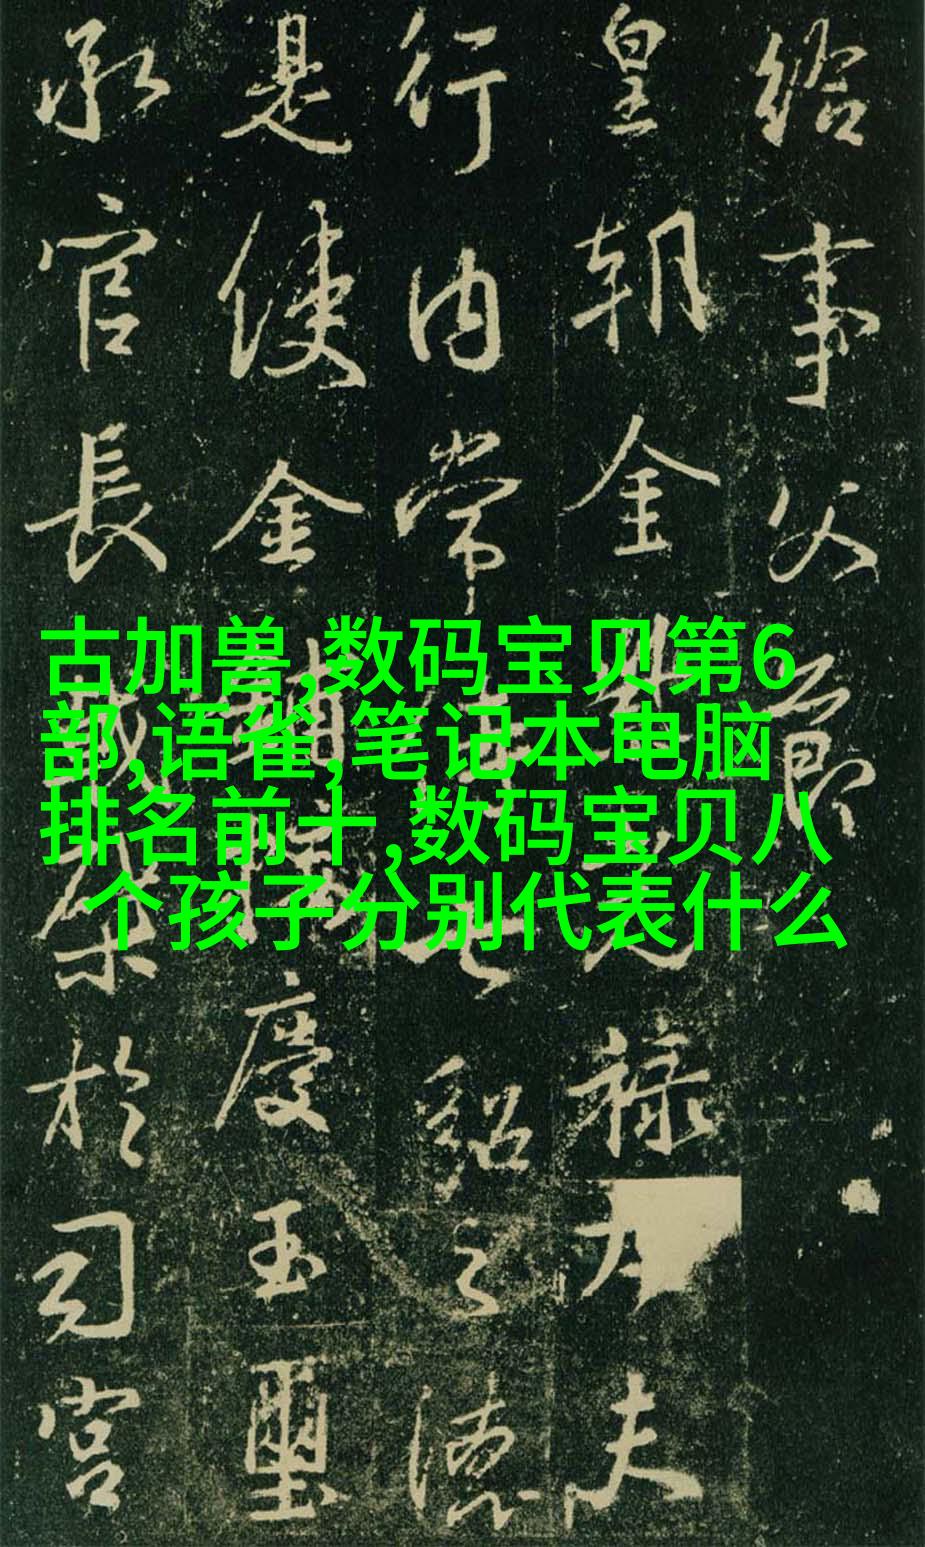 給事父節
皇朝金光禄大夫
行内常之德
是使金輔慶玉璽
承官長於司宮
古加兽,数码宝贝第6
部,语雀,笔记本电脑
排名前十,数码宝贝八
个孩子分别代表什么